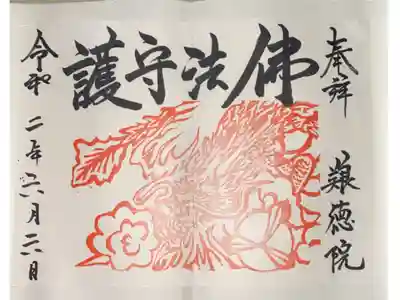 奉拝
徳院
佛法守護
令和二年六月二日